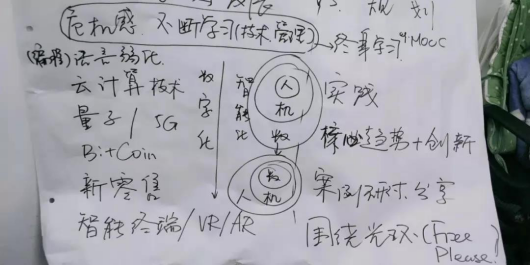 规划
危机感、不断学习(技术管理)→终身学习"MOCC
(编程)语言弱化
云计算技术
量子/5G
Bi+Coin
新零售
智能终端/VR/AR
数字化
智能化
人
机
数
数
机
人
实践
核心趋势+创新
案例研术分享
围绕光环(Free
Please.